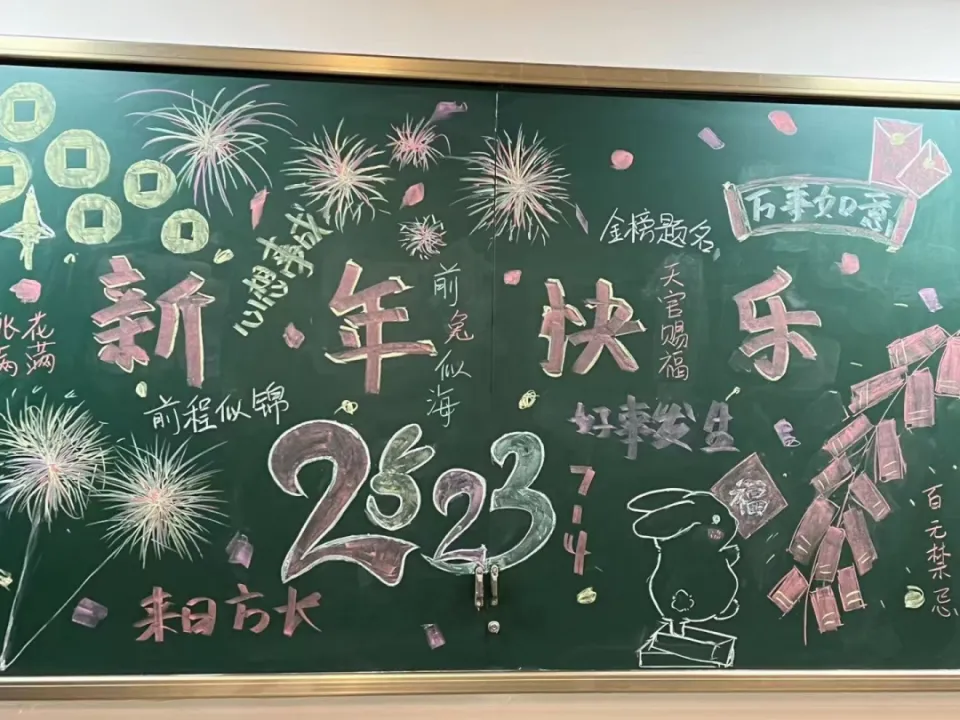 万事如意
金榜题名
心想事成
新年快乐
前兔似海
天官赐福
花满
前程似锦
好事发生
2023
7-14
福
百无禁忌
来日方长